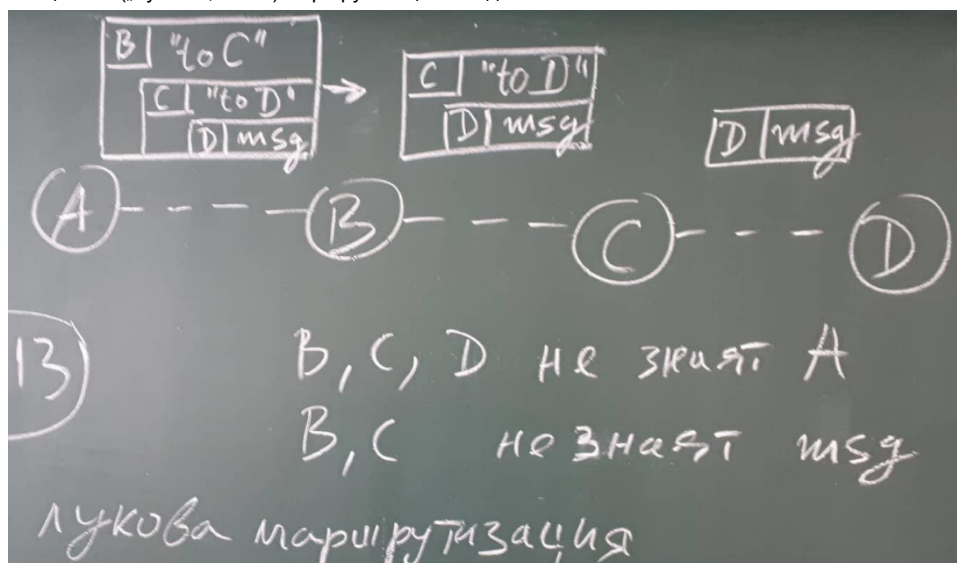 B "to C"
C "to D"
D msg
C "to D"
D msg
D msg
A B C D
13
B, C, D не знаят A
B, C не знаят msg
лукова маршрутизация